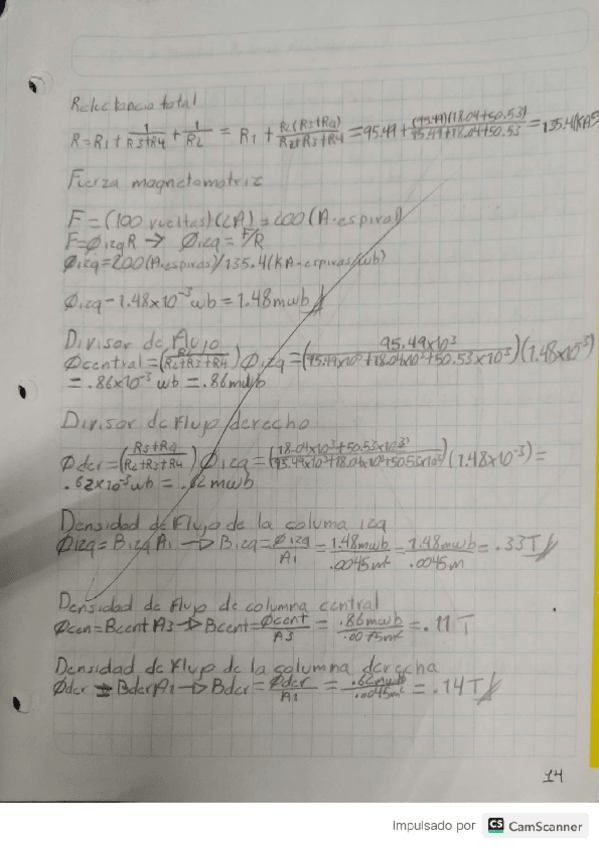 Reluctancia total
R=R1+1/(R3+R4)+1/R2 = R1+R2(R3+R4)/(R2+R3+R4)=95.49+(95.49)(18.04+50.53)/(95.49+18.04+50.53)=135.4(KA
Fuerza magnetomotriz
F=(100 vueltas)(2A)=200(A-espiras)
F=ØizqR → Øizq=F/R
Øizq=200(A-espiras)/135.4(KA-espiras/wb)
Øizq-1.48x10⁻³wb=1.48mwb
Divisor de flujo
Øcentral=(R2/(R2+R3+R4))Øizq=(95.49x10³/(95.49x10³+18.04x10³+50.53x10³))(1.48x10⁻³)
=.86x10⁻³ wb=.86mwb
Divisor de flujo derecho
Øder=((R3+R4)/(R2+R3+R4))Øizq=((18.04x10³+50.53x10³)/(95.49x10³+18.04x10³+50.53x10³))(1.48x10⁻³)=
.62x10⁻³wb=.62mwb
Densidad de flujo de la columa izq
Øizq=BizqA1→Bizq=Øizq/A1=1.48mwb/.0045m²=1.48mwb/.0045m=.33T
Densidad de flujo de columna central
Øcen=BcentA3→Bcent=Øcent/A3=.86mwb/.0075m²=.11T
Densidad de flujo de la columna derecha
Øder=BderA1→Bder=Øder/A1=.62mwb/.0045m²=.14T
14
Impulsado por CS CamScanner